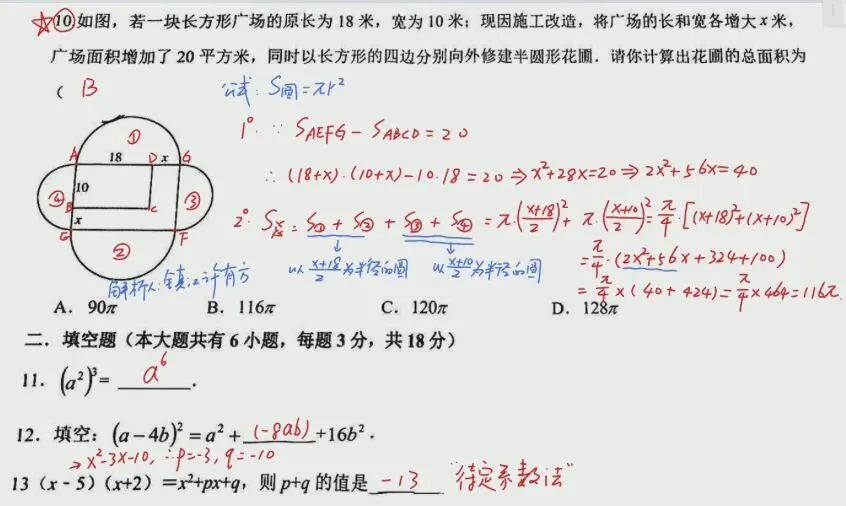 ☆⑩如图，若一块长方形广场的原长为 18 米，宽为 10 米；现因施工改造，将广场的长和宽各增大 x 米，
广场面积增加了 20 平方米，同时以长方形的四边分别向外修建半圆形花圃．请你计算出花圃的总面积为
（ B
公式: S圆=πr²
1°. ∵ S_AEFG - S_ABCD = 20
∴ (18+x)·(10+x)-10·18=20 ⇒ x²+28x=20 ⇒ 2x²+56x=40
2°. S总 = S① + S② + S③ + S④ = π·((x+18)/2)² + π·((x+10)/2)² = π/4·[(x+18)²+(x+10)²]
以 (x+18)/2 为半径的圆 以 (x+10)/2 为半径的圆
= π/4·(2x²+56x+324+100)
= π/4×(40+424) = π/4×464 = 116π.
① A 18 D x G
④ 10 ③
B C
x
E F
②
解析人:
A． 90π B．116π C．120π D．128π
二．填空题（本大题共有 6 小题，每题 3 分，共 18 分）
11．(a²)³= a⁶ ．
12．填空：(a－4b)²＝a²＋ (-8ab) +16b²．
→ x²-3x-10, ∴p=-3, q=-10
13（x﹣5）（x+2）＝x²+px+q，则 p+q 的值是 -13 "待定系数法"